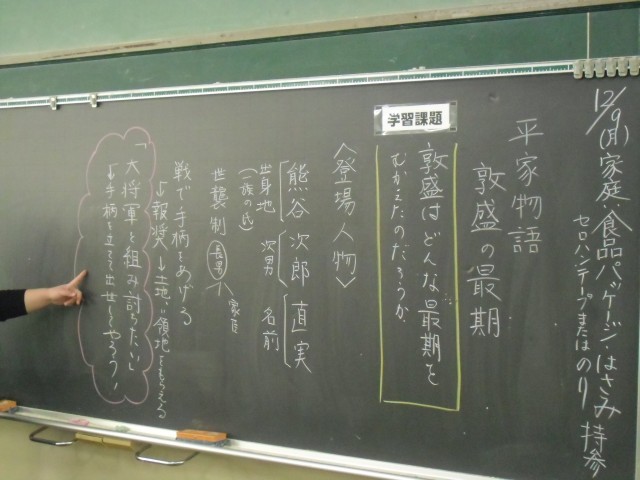 12/9(月)家庭・食品パッケージ・はさみ
セロハンテープまたはのり 持参
平家物語
敦盛の最期
学習課題
敦盛はどんな最期を
むかえたのだろうか。
〈登場人物〉
熊谷 次郎 直実
出身地 次男 名前
(一族の氏)
世襲制 長男
戦で手柄をあげる
↓報奨→土地=領地をもらえる
「大将軍を組み討ちたい」
↓手柄を立てて出世してやろう!